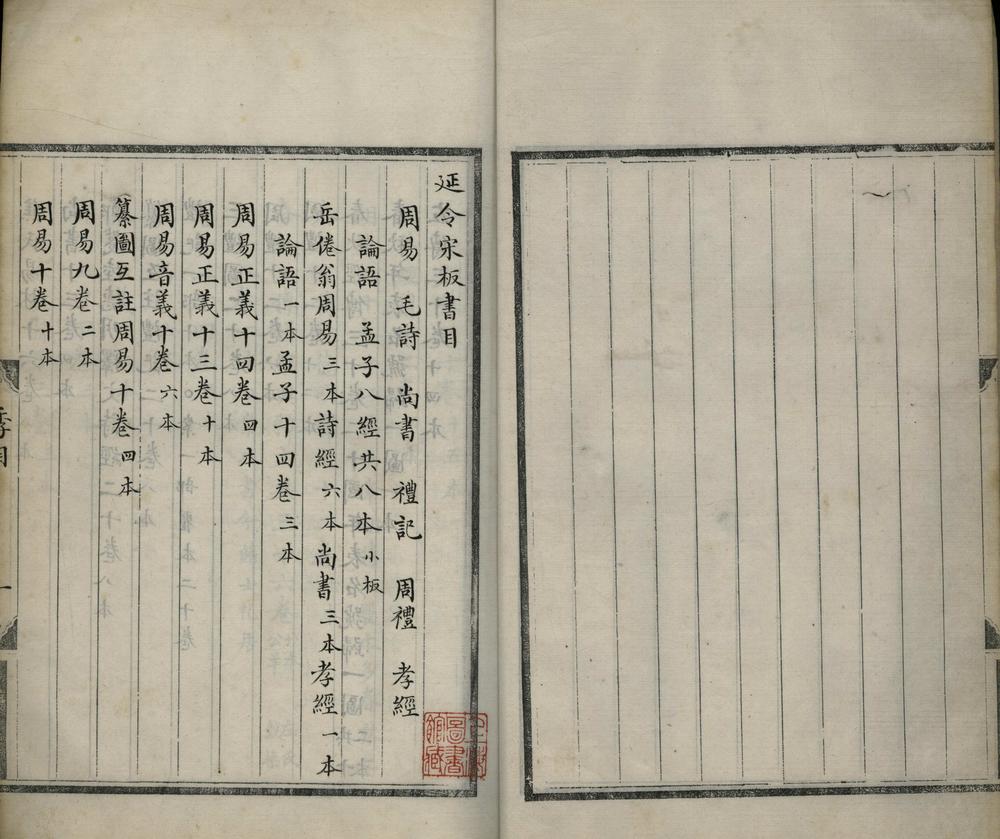 延令宋板書目
周易 毛詩 尚書 禮記 周禮 孝經
論語 孟子八經共八本小板
岳倦翁周易三本詩經六本尚書三本孝經一本
論語一本孟子十四卷三本
周易正義十四卷四本
周易正義十三卷十本
周易音義十卷六本
纂圖互註周易十卷四本
周易九卷二本
周易十卷十本
季目
一